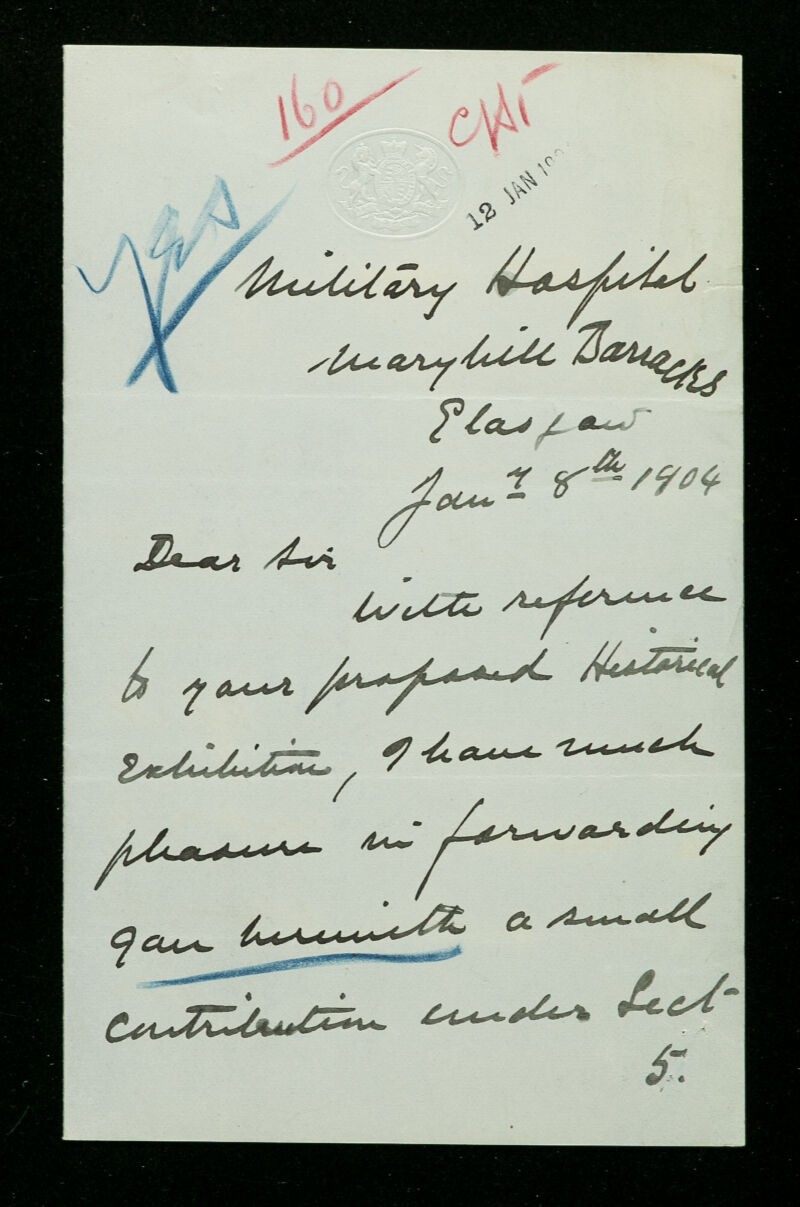 160
CHT
12 JAN
yes
Military Hospital
Maryhill Barracks
Glasgow
Jany 8th 1904
Dear Sir
With reference
to your proposed Historical
Exhibition, I have much
pleasure in forwarding
you herewith a small
contribution under Sect
5.